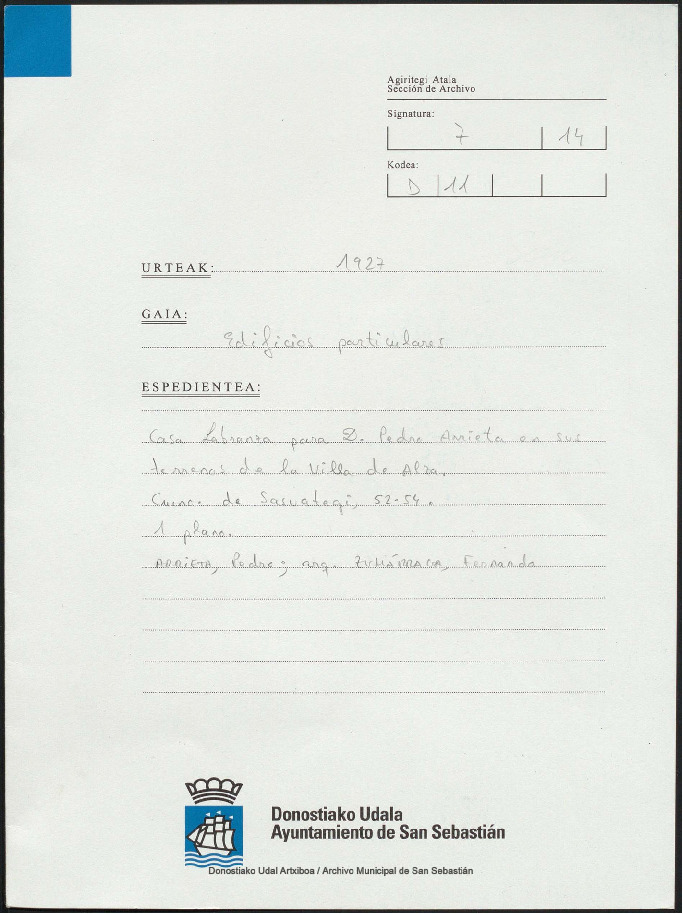 Agiritegi Atala
Sección de Archivo
Signatura:
7 14
Kodea:
D 11
URTEAK: 1927
GAIA:
Edificios particulares
ESPEDIENTEA:
Casa Labranza para D. Pedro Arrieta en sus
terrenos de la Villa de Alza.
de Sasuategi, 52-54.
1 plano.
ARRIETA, Pedro; arq. ZUMÁRRAGA, Fernando
Donostiako Udala
Ayuntamiento de San Sebastián
Donostiako Udal Artxiboa / Archivo Municipal de San Sebastián